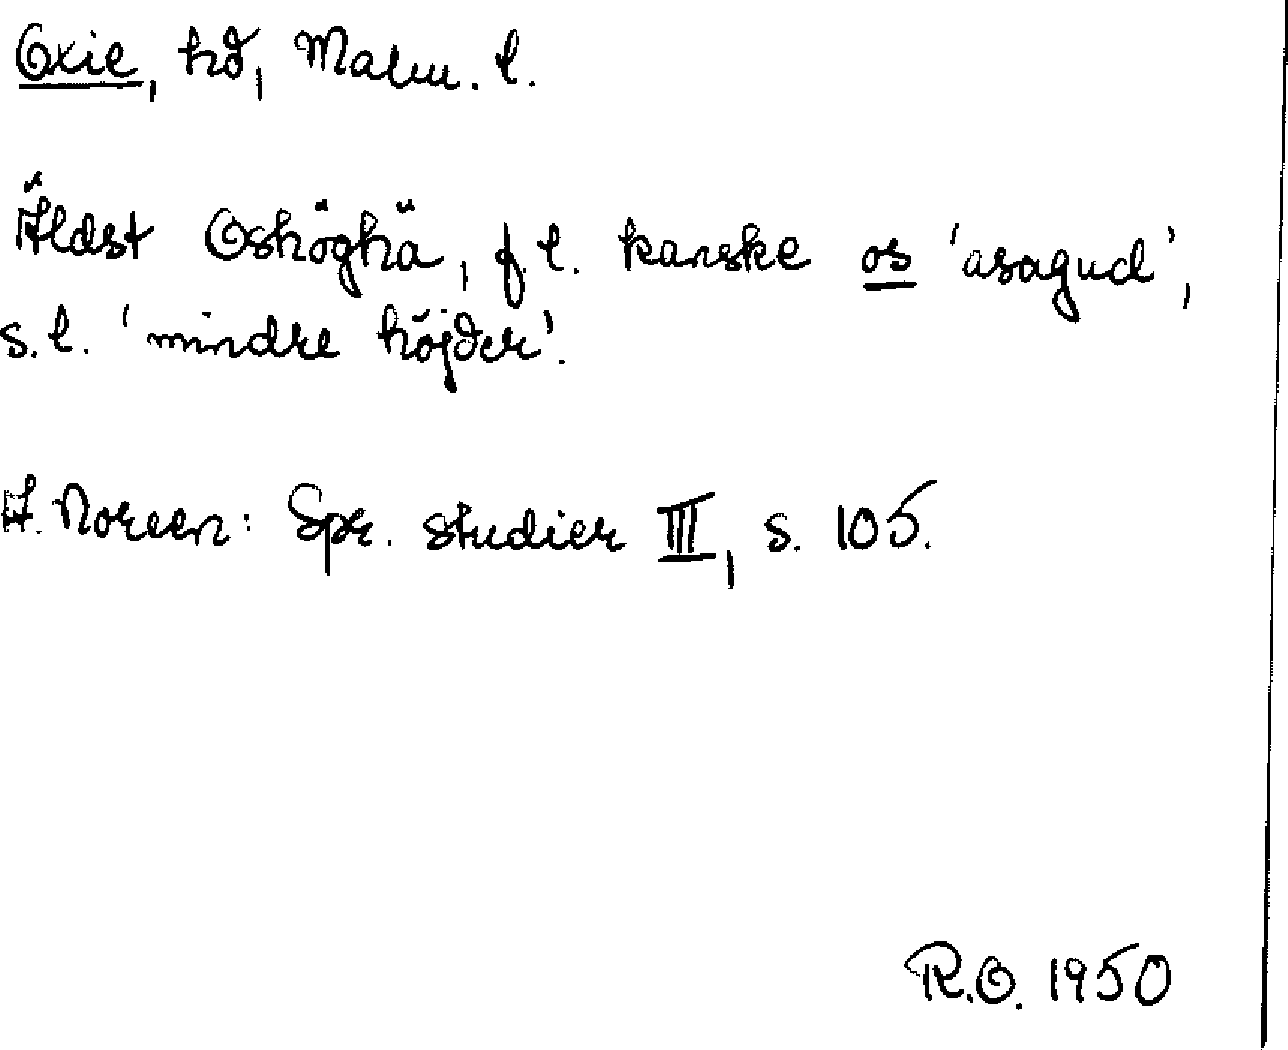 Oxie, hd, Malm. l.
Äldst Oshöghä, f.l. kanske os 'asagud',
s.l. 'mindre höjder'.
A. Noreen: Spr. studier III, s. 105.
R.O. 1950